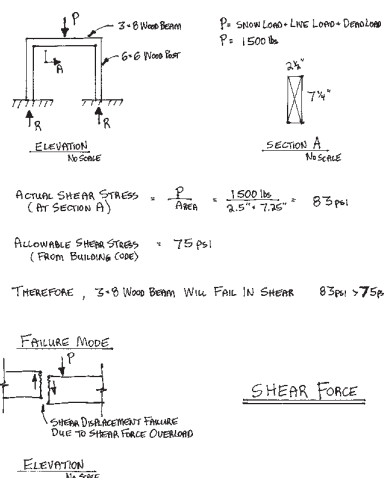 P
3×8 WOOD BEAM
6×6 WOOD POST
A
R
R
ELEVATION
NO SCALE
P= SNOW LOAD + LIVE LOAD + DEAD LOAD
P= 1500 lbs
2½"
7¼"
SECTION A
NO SCALE
ACTUAL SHEAR STRESS = P / AREA = 1500 lbs / 2.5" × 7.25" = 83 psi
(AT SECTION A)
ALLOWABLE SHEAR STRESS = 75 psi
(FROM BUILDING CODE)
THEREFORE, 3×8 WOOD BEAM WILL FAIL IN SHEAR 83 psi > 75 ps
FAILURE MODE
P
SHEAR DISPLACEMENT FAILURE
DUE TO SHEAR FORCE OVERLOAD
ELEVATION
NO SCALE
SHEAR FORCE